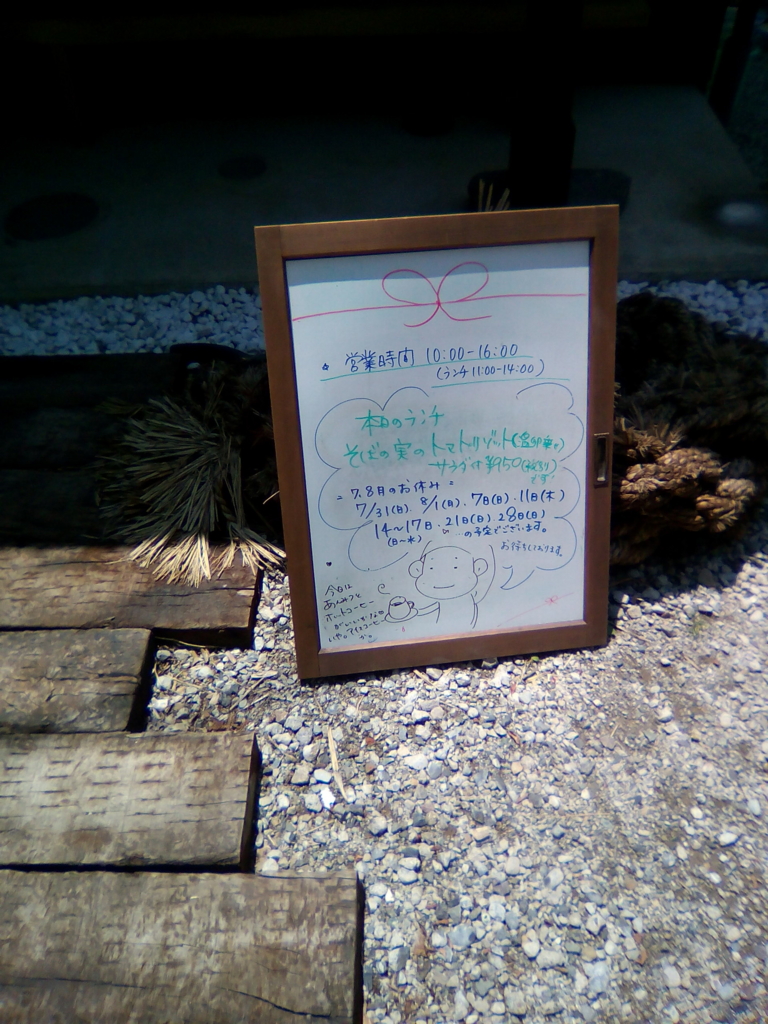 ☆ 営業時間 10:00-16:00
(ランチ 11:00-14:00)
本日のランチ
そばの実のトマトリゾット(温卵乗
サラダ付 ¥950(税込)
です!
= 7、8月のお休み =
7/31(日). 8/1(月). 7日(日). 11日(木)
14〜17日. 21日(日). 28日(日)
(日〜水) …の予定でございます。
お待ちしております。
今日は
あんみつと
ホットコーヒー
がいいかな
いや。アイスコーヒー
か。